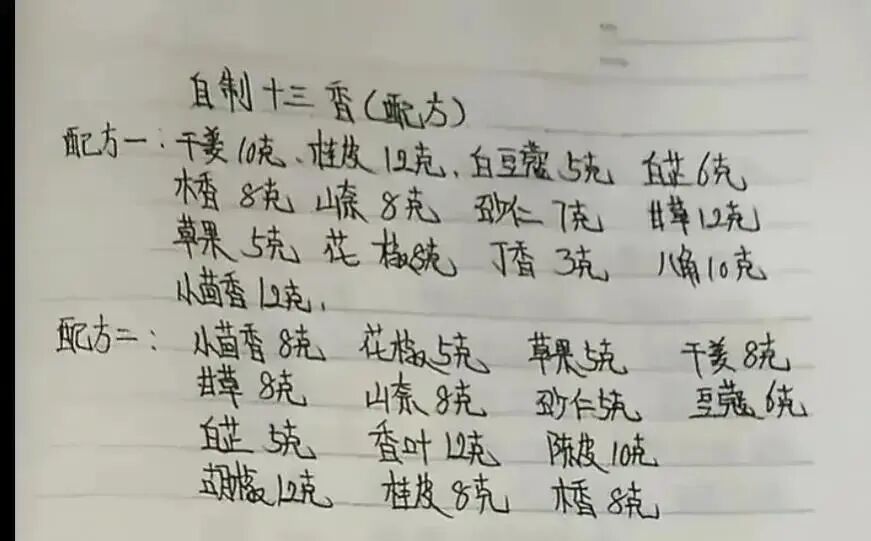 自制十三香(配方)
配方一:干姜10克、桂皮12克、白豆蔻5克 白芷6克
木香 8克 山奈 8克 砂仁 7克 甘草12克
草果 5克 花椒8克 丁香 3克 八角10克
小茴香12克,
配方二: 小茴香8克 花椒5克 草果5克 干姜8克
甘草 8克 山奈8克 砂仁5克 豆蔻6克
白芷 5克 香叶12克 陈皮10克
胡椒12克 桂皮8克 木香8克